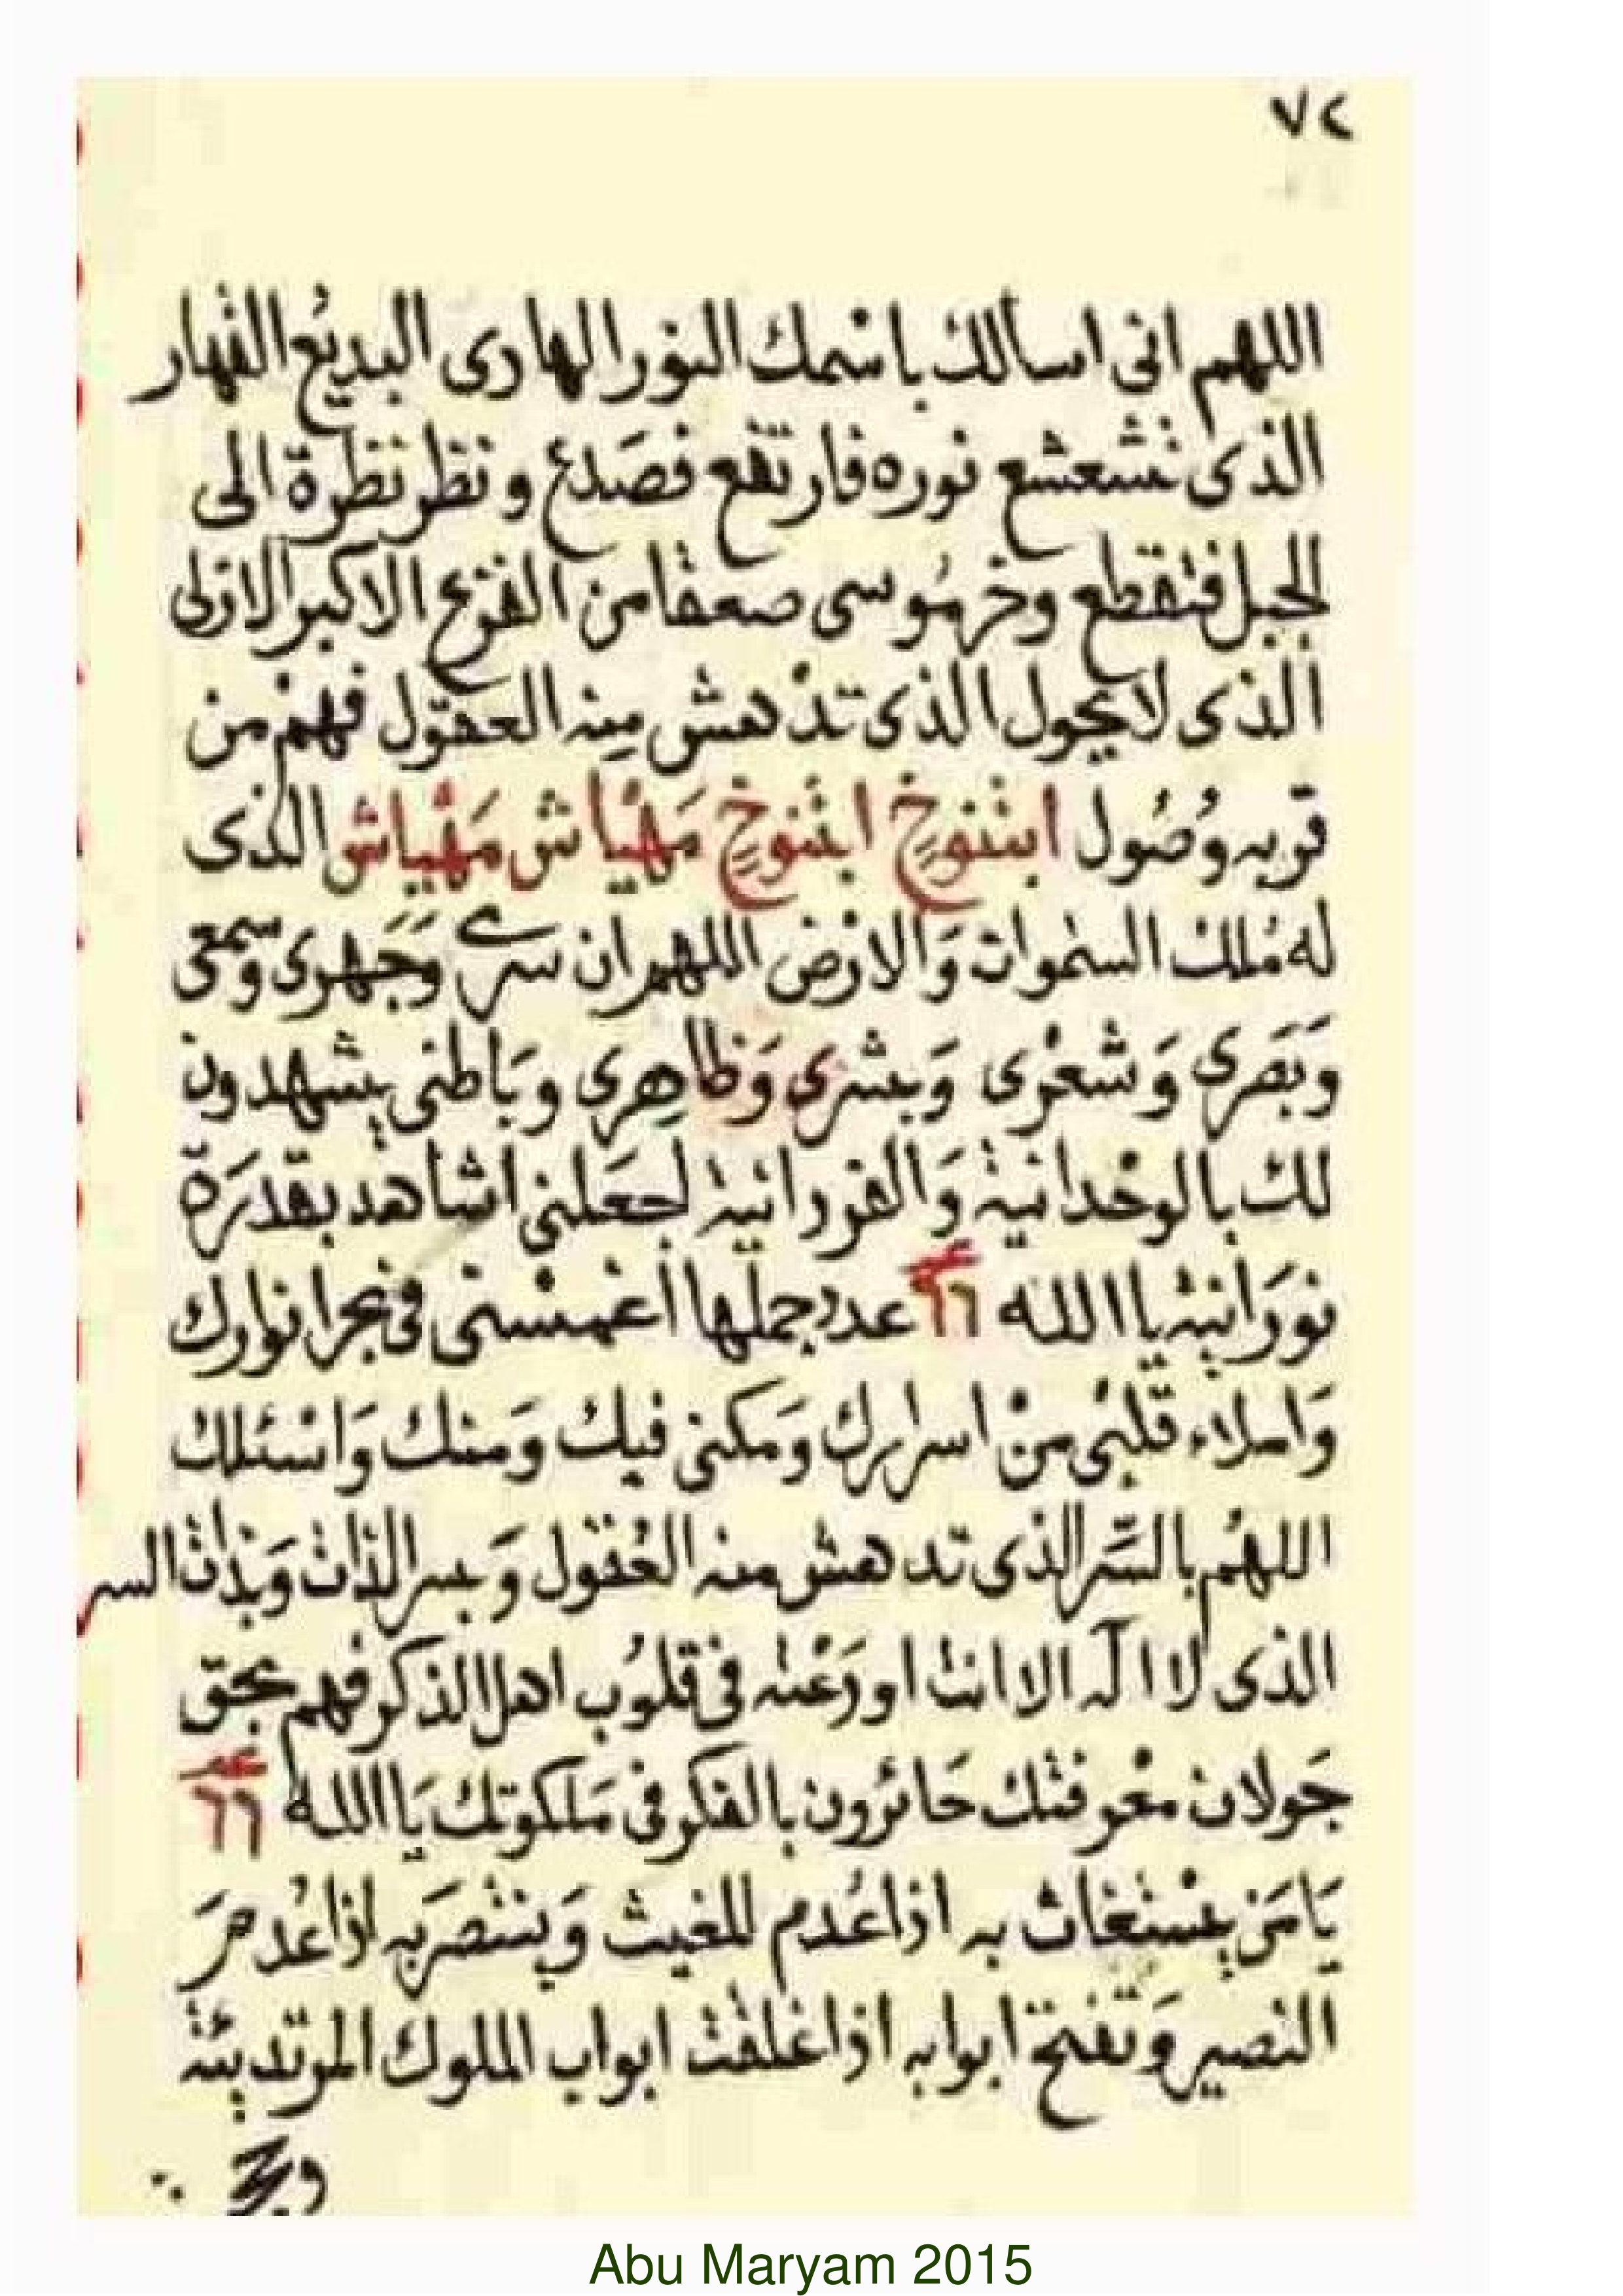 ٧٢
اللهم انى اسالك باسمك النور الهادى البديع القهار
الذى تشعشع نوره فارتفع فصدع ونظر نظرة الى
الجبل فتقطع وخر موسى صعقا من الفزع الاكبر الازلى
الذى لا يحول الذى تدهش منه العقول فهم من
قربه وصُول ابشنوخ ابشنوخ مَهْيَاش مَهْيَاش الذى
له مُلك السموات وَالارض اللهم ان سرے وَجَهرى وسمعى
وَبَصَرى وَشعْرى وَبشرى وَظاهِرى وبَاطنى يشهدون
لك بالوحْدانية وَالفردانية اجعَلنى اشاهد بقدرَة
نورَانية يا الله ٦٦ عدد جملها أغمسنى فى بحر انوارك
وَاملاء قلبى منْ اسرارك وَمكنى فيك وَمنك وَاسْئلك
اللهُم بالسِّر الذى تدهش منه العُقول وَبسر الذات وَبذات السر
الذى لا اله الا انت اودَعْته فى قلوُب اهل الذكر فهم بحق
جَولان معْرفتك حَائرون بالفكر فى مَلكوتك يَا الله ٦٦
يَا مَن يسْتغاث به اذا عُدم المغيث وَينتصرَ به اذا عُدمَ
النصير وَتفتح ابوابه اذا غلقت ابواب الملوك المرتدية